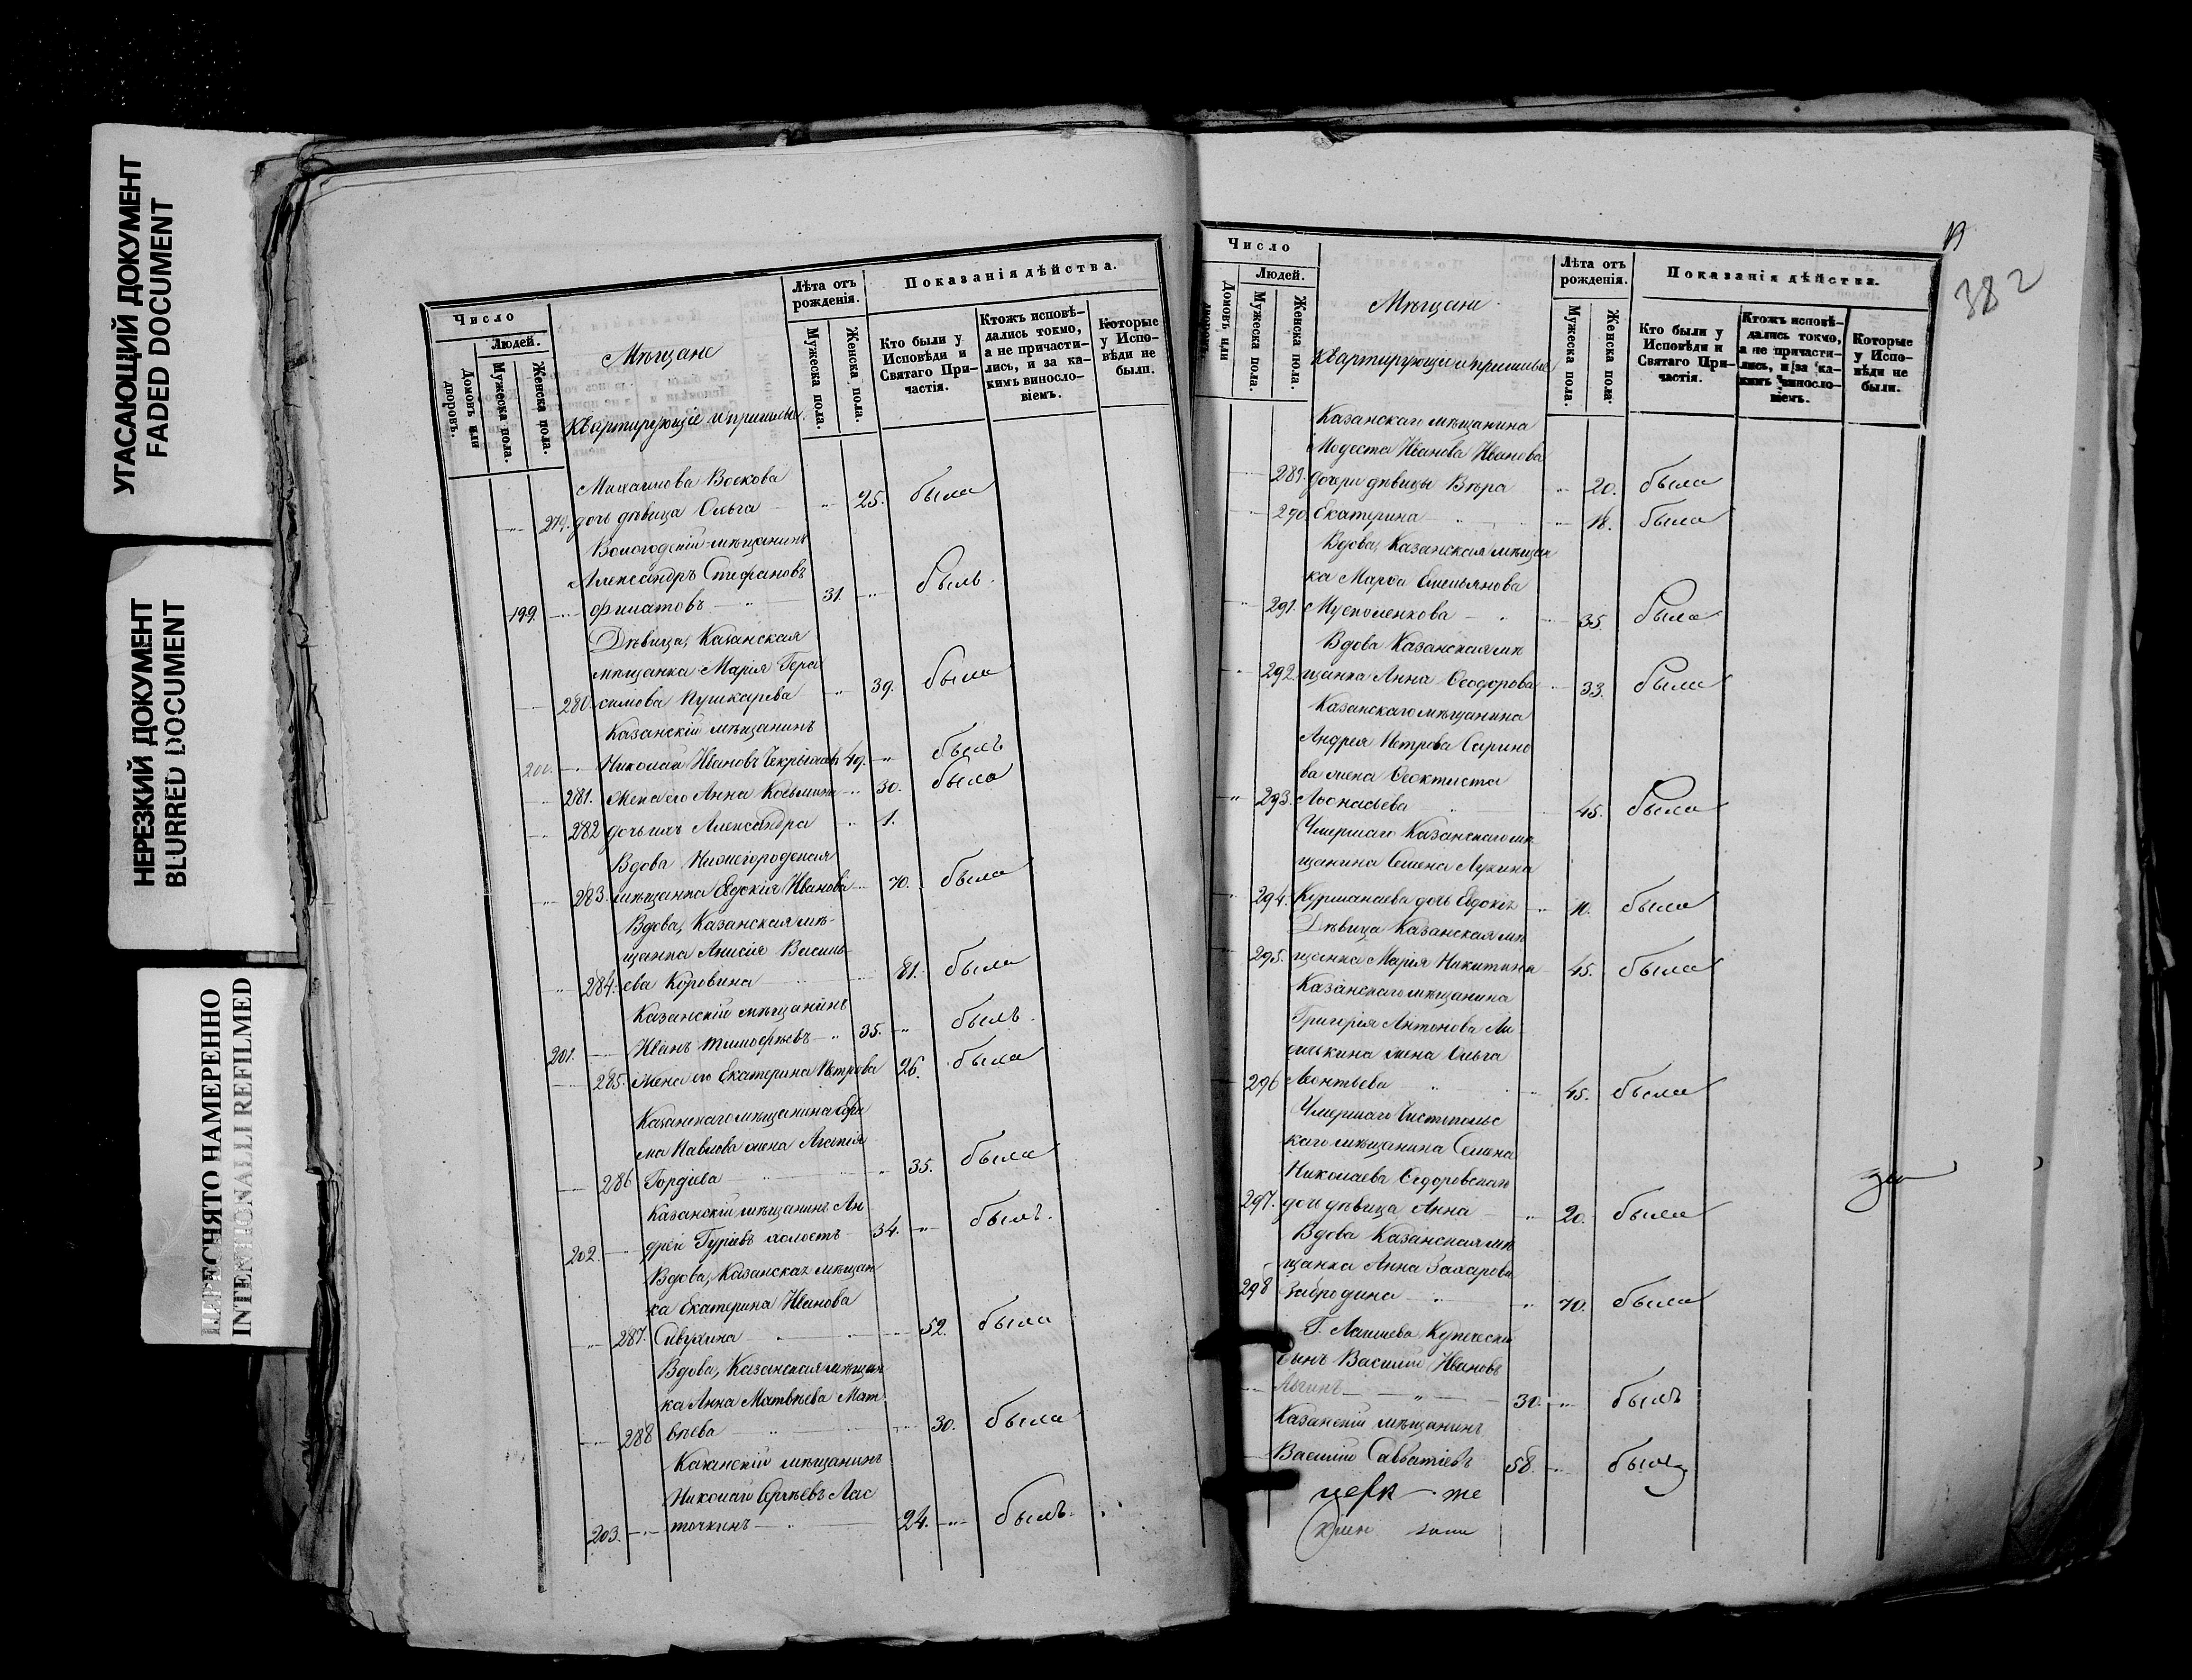 УГАСАЮЩИЙ ДОКУМЕНТ
FADED DOCUMENT
НЕРЕЗКИЙ ДОКУМЕНТ
BLURRED DOCUMENT
ПЕРЕСНЯТО НАМЕРЕННО
INTENTIONALLI REFILMED
Число
Людей.
Домовъ или дворовъ.
Мужеска пола.
Женска пола.
Мѣщане
Квартирующіе и пришлые
Лѣта отъ рожденія.
Мужеска пола.
Женска пола.
Показанія дѣйства.
Кто были у Исповѣди и Святаго Причастія.
Ктожъ исповѣдались токмо, а не причастились, и за какимъ винословіемъ.
Которые у Исповѣди не были.
Михайлова Воскова
279. дочь дѣвица Ольга 25. была
Вологодскій мѣщанинъ
Александръ Стефановъ
199. Филатовъ 31. былъ
Дѣвица, Казанская
мѣщанка Марія Гера
280. симова Пушкарева 39. была
Казанскій мѣщанинъ
200. Николай Ивановъ 49. былъ
281. Жена его Анна Козьмина 30. была
282 дочь ихъ Александра 1.
Вдова Нижегородская
283. мѣщанка Евдокія Иванова 70. была
Вдова, Казанская мѣ-
щанка Анисія Василь-
284. ева Коровина 81. была
Казанскій мѣщанинъ
201. Иванъ Тимофѣевъ 35. былъ
285. Жена его Екатерина Петрова 26. была
Казанскаго мѣщанина Ефи
ма Павлова жена Агапія
286 Гордіева 35. была
Казанскій мѣщанинъ Ан
202. дрей Гурьевъ холостъ 34. былъ.
Вдова, Казанская мѣщан
ка Екатерина Иванова
287. Сивухина 52. была
Вдова, Казанская мѣщан
ка Анна Матвѣева Мат
288 вѣева 30. была
Казанскій мѣщанинъ
Николай Сергѣевъ Лас
203. точкинъ 24. былъ.
382
Число
Людей.
Домовъ или дворовъ.
Мужеска пола.
Женска пола.
Мѣщане
Квартирующіе и пришлые
Лѣта отъ рожденія.
Мужеска пола.
Женска пола.
Показанія дѣйства.
Кто были у Исповѣди и Святаго Причастія.
Ктожъ исповѣдались токмо, а не причастились, и за какимъ винословіемъ.
Которые у Исповѣди не были.
Казанскаго мѣщанина
Модеста Иванова Иванова
289. дочери дѣвицы Вѣра 20. была
290. Екатерина 18. была
Вдова, Казанская мѣщан
ка Марѳа Емельянова
291. 35. была
Вдова Казанская мѣ
292. щанка Анна Ѳеодорова 33. была
Казанскаго мѣщанина
Андрея Петрова Сирино
ва жена Ѳеоктиста
293. Аѳонасьева 45. была
Умершаго Казанскаго мѣ
щанина Семена Лукина
294. Курманаева дочь Евдокія 10. была
Дѣвица Казанская мѣ
295. щанка Марія Никитина 45. была
Казанскаго мѣщанина
Григорія Антонова
жена Ольга
296 Леонтьева 45. была
Умершаго Чистопольс
каго мѣщанина Семена
Николаева Ѳедоровскаго
297. дочь дѣвица Анна 20. была
Вдова Казанская мѣ
щанка Анна Захарова
298 Забродина 70. была
Г. Лаишева, Купеческій
сынъ Василій Ивановъ
30. былъ
Казанскій мѣщанинъ
Василій Савватіевъ 58. былъ